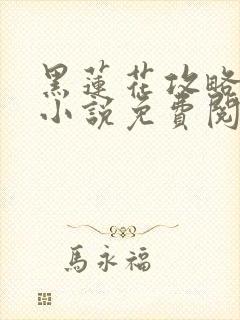 黑蓮花攻略
小說免費閱
馬永福